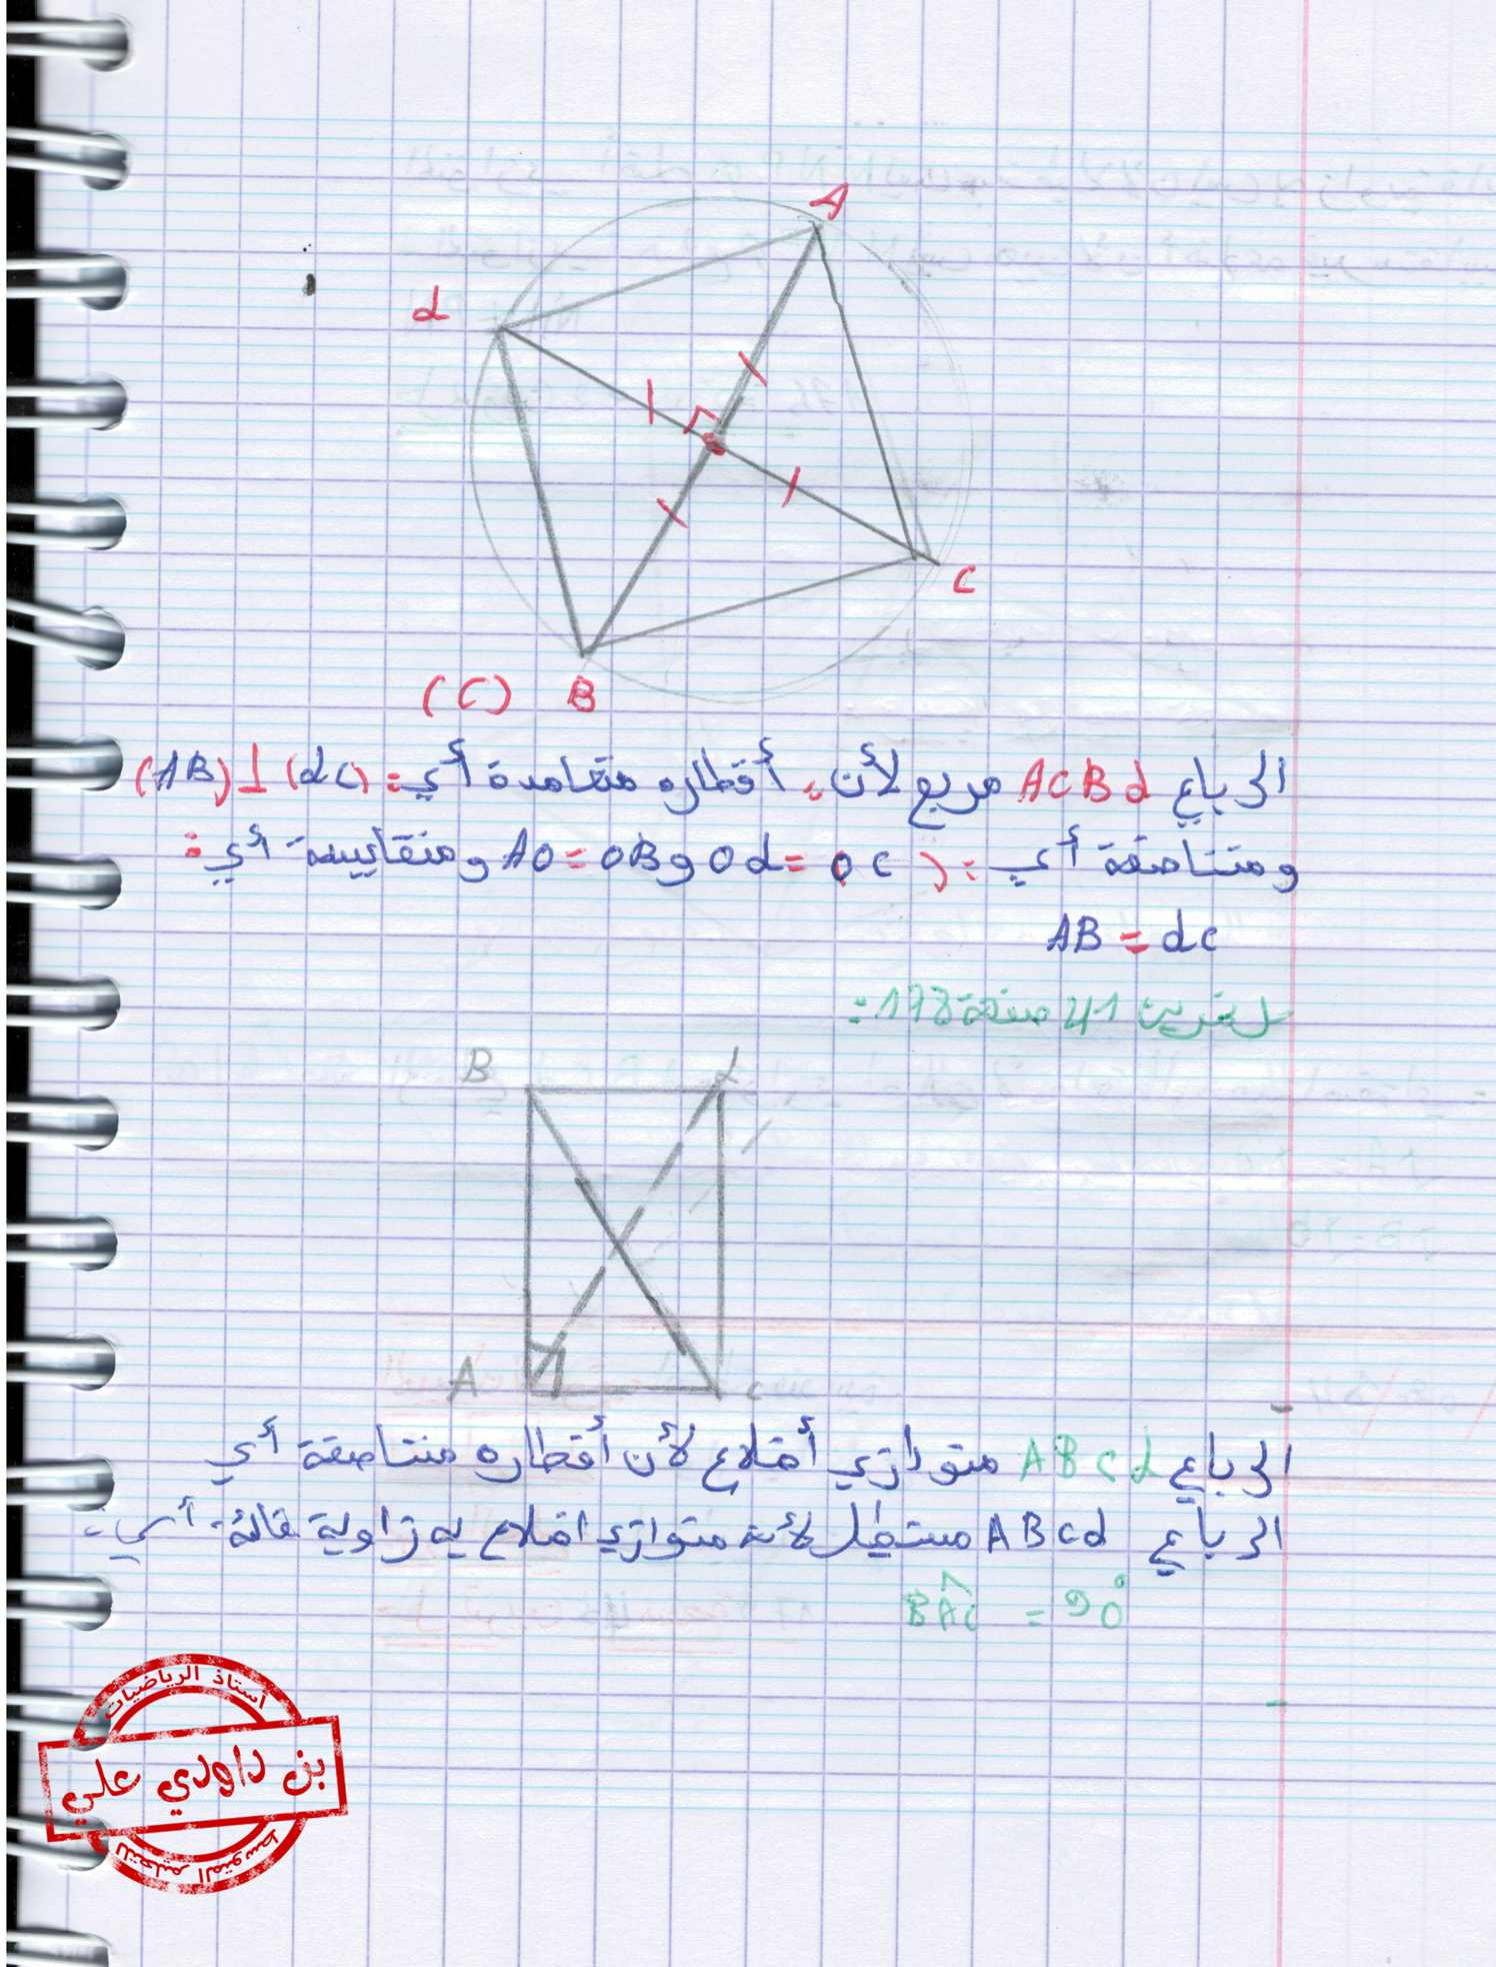 A
d
C
(C) B
الرباعي ACBd مربع لأن: أقطاره متعامدة أي: (AB)⊥(dC)
ومتناصفة أي: (AO=OB و Od=OC) ومتقايسة أي:
AB = dC
تمرين 41 صفحة 178:
B
A
C
الرباعي ABCd متوازي أضلاع لأن أقطاره متناصفة أي
الرباعي ABCd مستطيل لأنه متوازي اضلاع به زاوية قائمة أي:
BÂC = 90°
أستاذ الرياضيات
بن داودي علي
للتعليم المتوسط